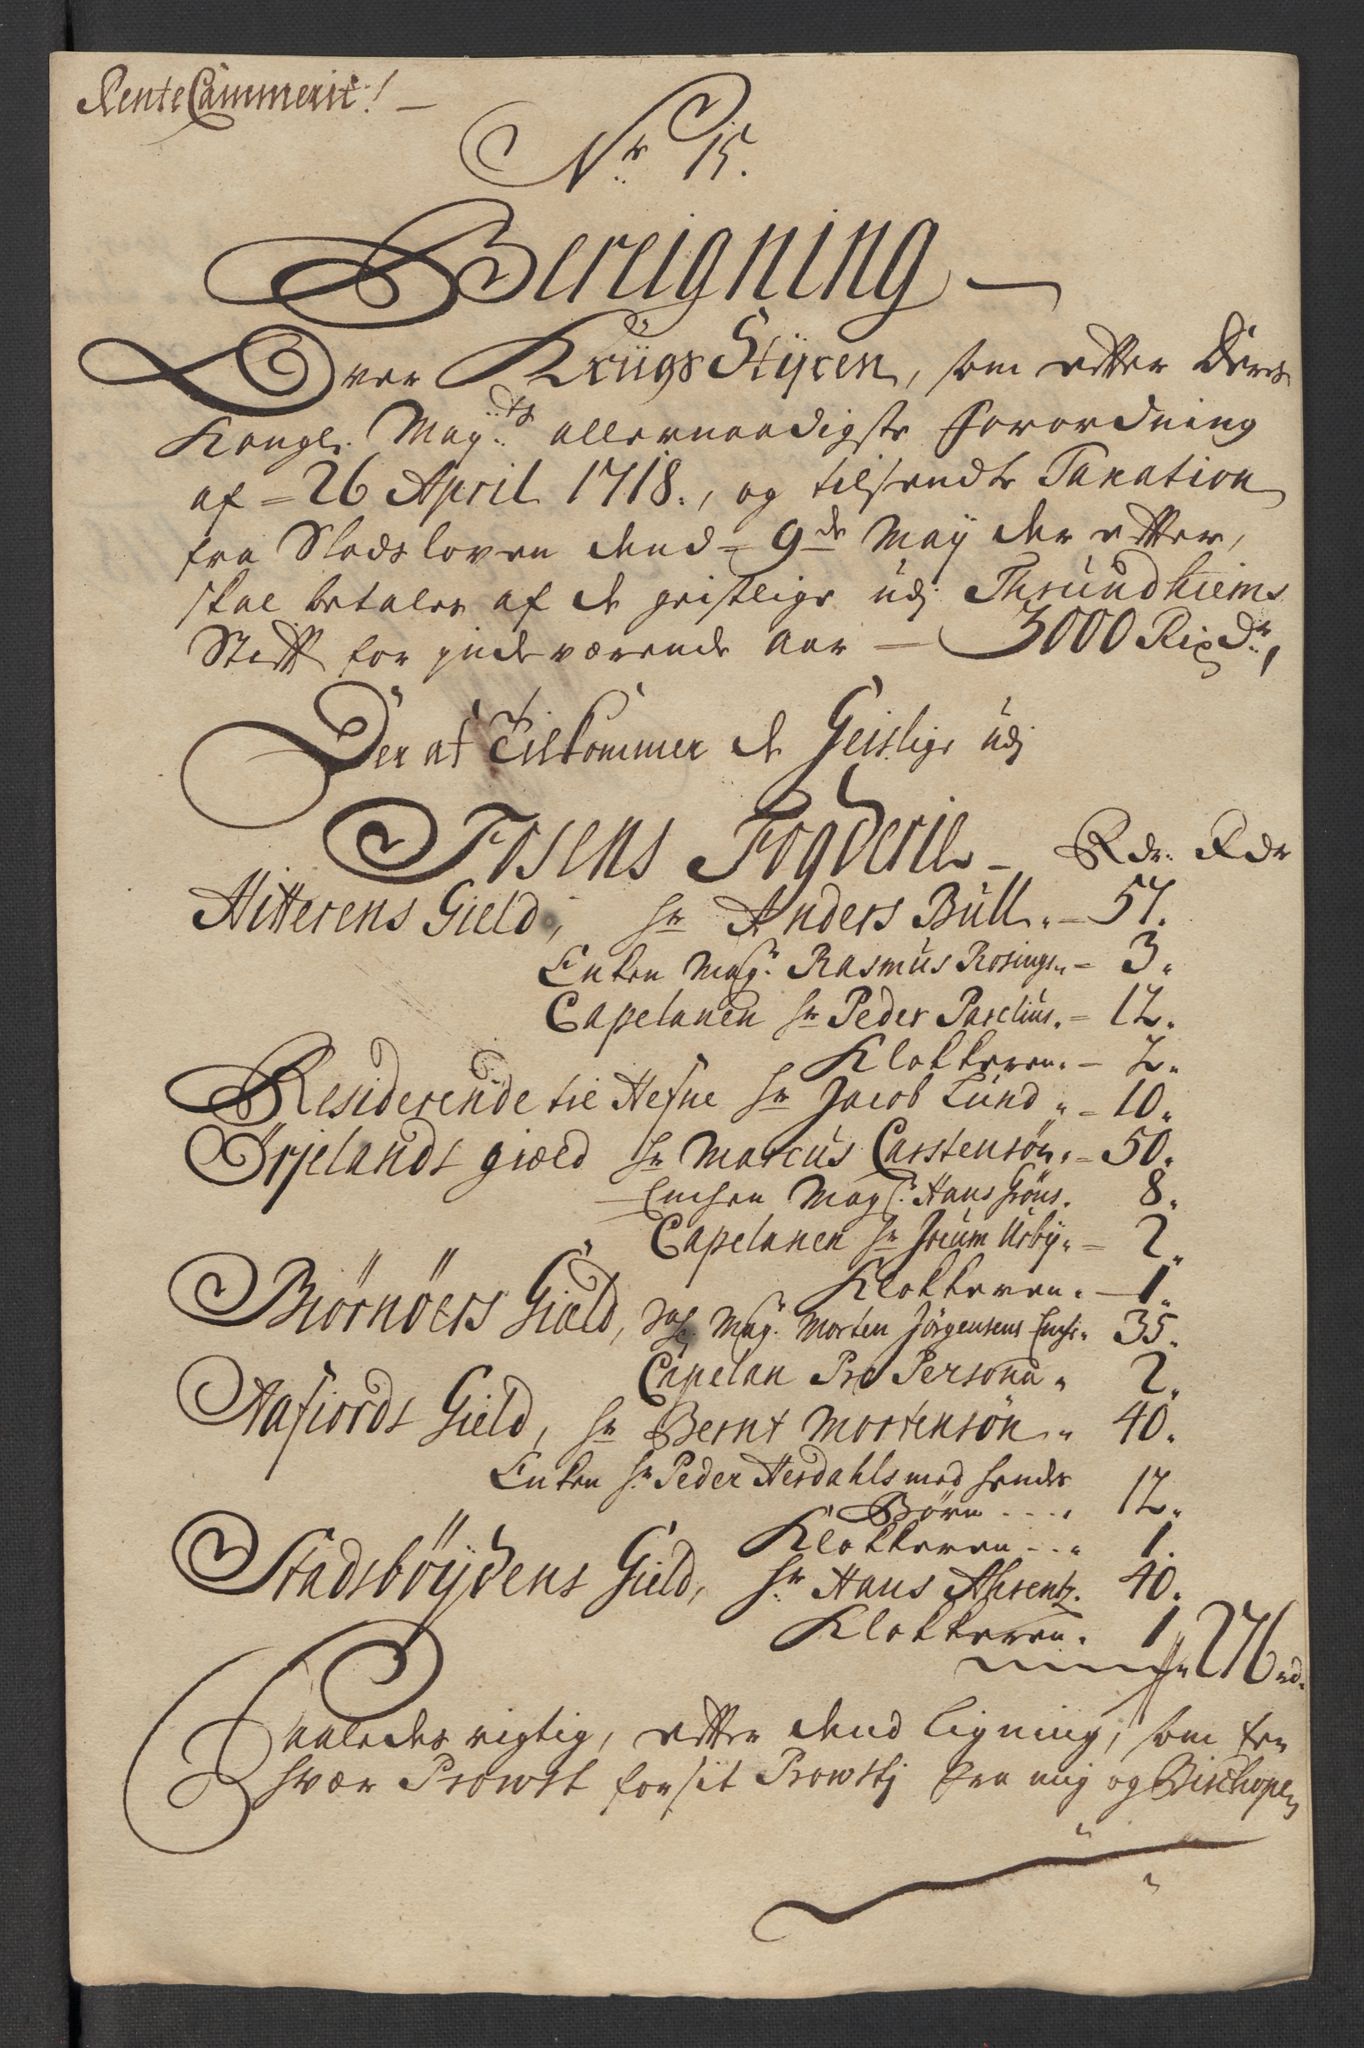 RenteCammerit!
Nr 15.
Bereigning
Over Kriigs Stÿren, som efter Deris
Kongl. Mayts allernaadigste forordning
af 26 April 1718., og tilsendte Taxation
fra Slodsloven dend 9de Maÿ der efter,
skal betales af de geistlige udj Thrundhiems
Stift for inde værende Aar 3000 Rixdr,
Der af Tilkommer de Geistlige udj
Fosens Fogderie Rdr. Rdr
Hitterens Gield, hr Anders Bull. 57.
Enken Magr. Rasmus Rosings. 3.
Capelanen hr Peder Parelius. 12.
Klokkeren. 2.
Residerende til Hefne hr Jacob Lund 10.
Ørjelands giæld hr Marcus Carstensøn. 50.
Enchen Magr. Hans Grøns. 8.
Capelanen hr Urbÿ. 2.
Klokkeren. 1.
Biørnöers Giæld, Magr. Morten Jörgensens Enche. 35.
Capelan Pro Persona 2.
Aafiords Gield, hr Bernt Mortensøn 40.
Enken hr Peder Herdahls med hendes
Børn 12.
Klokkeren 1.
Stadsböydens Gield, hr Hans Ahrentz. 40.
Klokkeren. 1 276 rd.
Saaledes rigtig, efter dend ligning, som
hver Prowst for sit Prowstj fra mig og Bischopen